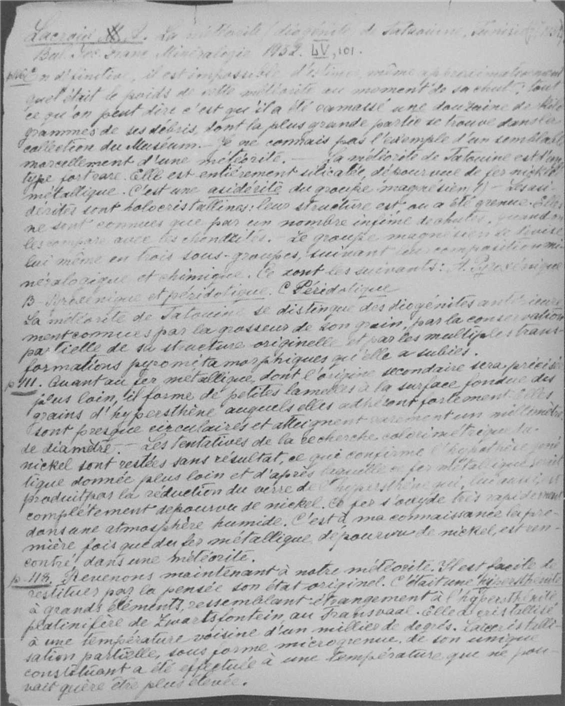 Lacroix, A. La météorite (diogénite) de Tataouine, Tunisie
Bul. Soc. franç. Minéralogie 1932. LV, 101.
n d'insister, il est impossible, d'estimer, même approximativement
quel était le poids de cette météorite au moment de sa chute: tout
ce qu'on peut dire c'est qu'il a été ramassé une douzaine de kilo
grammes de ses débris, dont la plus grande partie se trouve dans la
collection du Museum. — Je ne connais pas l'exemple d'un semblable
morcellement d'une météorite. — La météorite de Tatouine est d'un
type fort rare. Elle est entièrement silicatée, dépourvue de fer nickel
métallique. C'est une asidérite du groupe magnésien — Les asi
dérites sont holocristallines: leur structure est ou a été grenue. Elles
ne sont connues que par un nombre infime de chutes, quand on
les compare avec les chondrites. Le groupe magnésien se divise
lui même en trois sous-groupes, suivant leur composition mi
néralogique et chimique. Ce sont les suivants: A. Pyroxénique
B. Pyroxénique et péridotique. C Péridotique
La météorite de Tatouine se distingue des diogénites antérieure
ment connues par la grosseur de son grain, par la conservation
partielle de sa structure originelle et par les multiples trans-
formations pyrométamorphiques qu'elle a subies.
p. 111. Quant au fer métallique, dont l'origine secondaire sera précisée
plus loin, il forme de petites lamelles à la surface fondue des
grains d'hypersthène auxquels elles adhèrent fortement. Elles
sont presque circulaires et atteignent rarement un millimètre
de diamètre. — Les tentatives de la recherche colorimétrique du
nickel sont restées sans résultat, ce qui confirme l'hypothèse géné
tique donnée plus loin et d'après laquelle ce fer métallique serait
produit par la réduction du verre de l'hypersthène qui, lui aussi est
complètement dépourvu de nickel. Ce fer s'oxyde très rapidement
dans une atmosphère humide. C'est à ma connaissance la pre-
mière fois que du fer métallique, dépourvu de nickel, est ren-
contré dans une météorite.
p. 118. Revenons maintenant à notre météorite. Il est facile de
restituer par la pensée son état originel. C'était une hypersthénite
à grands éléments, ressemblant étrangement à l'hypersthénite
platinifère de Zwartsfontein, au Transvaal. Elle a cristallisé
à une température voisine d'un millier de degrés. La cristalli-
sation partielle, sous forme microgrenue, de son unique
constituant a été effectuée à une température que ne pou-
vait guère être plus élevée.